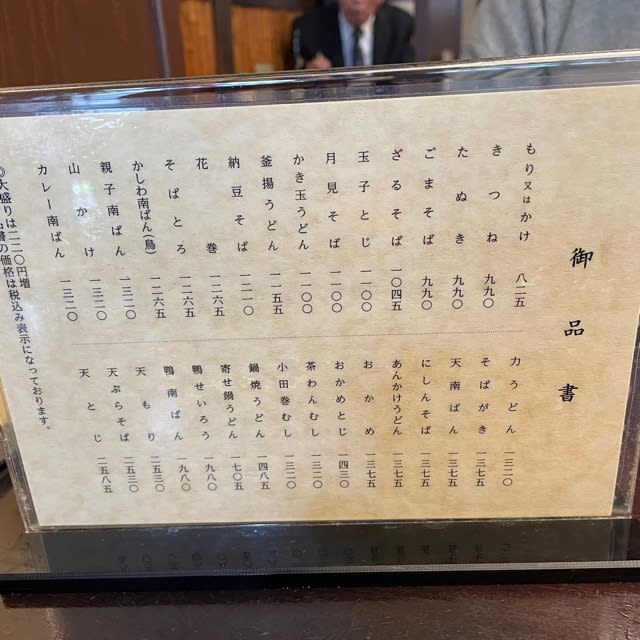 御品書
もり又はかけ 八二五
きつね 九九〇
たぬき 九九〇
ごまそば 九九〇
ざるそば 一〇四五
玉子とじ 一一〇〇
月見そば 一一〇〇
かき玉うどん 一一〇〇
釜揚うどん 一一五五
納豆そば 一二一〇
花巻 一二六五
そばとろ 一二六五
かしわ南ばん(鳥) 一三二〇
親子南ばん 一三二〇
山かけ 一三二〇
カレー南ばん
力うどん 一三二〇
そばがき 一三七五
天南ばん 一三七五
にしんそば 一三七五
あんかけうどん 一三七五
おかめ 一三七五
おかめとじ 一四三〇
茶わんむし 一三二〇
小田巻むし 一三二〇
鍋焼うどん 一四八五
寄せ鍋うどん 一七〇五
鴨せいろう 一九八〇
鴨南ばん 一九八〇
天もり 二五三〇
天ぷらそば 二五三〇
天とじ 二五八五
◎大盛りは二二〇円増
書の価格は税込み表示になっております。